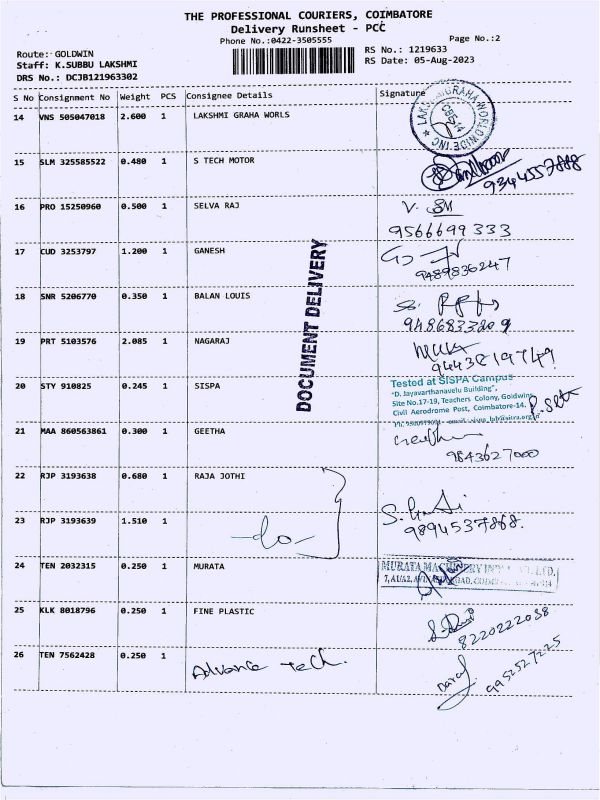 THE PROFESSIONAL COURIERS, COIMBATORE
Delivery Runsheet - PCC
Phone No.:0422-3505555
Page No.:2
Route:- GOLDWIN
RS No.: 1219633
Staff: K.SUBBU LAKSHMI
RS Date: 05-Aug-2023
DRS No.: DCJB121963302
S No Consignment No Weight PCS Consignee Details Signature
14 VNS 505047018 2.600 1 LAKSHMI GRAHA WORLS
15 SLM 325585522 0.480 1 S TECH MOTOR
9344557888
16 PRO 15250960 0.500 1 SELVA RAJ
9566699333
17 CUD 3253797 1.200 1 GANESH
9489836247
18 SNR 5206770 0.350 1 BALAN LOUIS
9486833209
19 PRT 5103576 2.085 1 NAGARAJ
DOCUMENT DELIVERY
20 STY 910825 0.245 1 SISPA
Tested at SISPA Campus
"D. Jayavarthanavelu Building",
Site No.17-19, Teachers Colony, Goldwins
Civil Aerodrome Post, Coimbatore-14.
21 MAA 860563861 0.300 1 GEETHA
9843627000
22 RJP 3193638 0.680 1 RAJA JOTHI
23 RJP 3193639 1.510 1
-do-
9894537868.
24 TEN 2032315 0.250 1 MURATA
MURATA MACHINERY
25 KLK 8018796 0.250 1 FINE PLASTIC
8220222038
26 TEN 7562428 0.250 1 Advance tech.
9952527225